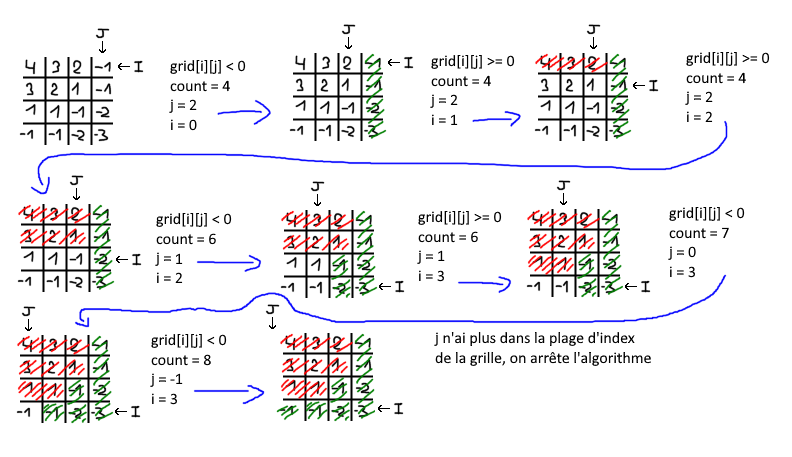 J
4 3 2 -1 ← I
3 2 1 -1
1 1 -1 -2
-1 -1 -2 -3
grid[i][j] < 0
count = 4
j = 2
i = 0
J
4 3 2 -1 ← I
3 2 1 -1
1 1 -1 -2
-1 -1 -2 -3
grid[i][j] >= 0
count = 4
j = 2
i = 1
J
4 3 2 -1
3 2 1 -1 ← I
1 1 -1 -2
-1 -1 -2 -3
grid[i][j] >= 0
count = 4
j = 2
i = 2
J
4 3 2 -1
3 2 1 -1
1 1 -1 -2 ← I
-1 -1 -2 -3
grid[i][j] < 0
count = 6
j = 1
i = 2
J
4 3 2 -1
3 2 1 -1
1 1 -1 -2
-1 -1 -2 -3 ← I
grid[i][j] >= 0
count = 6
j = 1
i = 3
J
4 3 2 -1
3 2 1 -1
1 1 -1 -2
-1 -1 -2 -3 ← I
grid[i][j] < 0
count = 7
j = 0
i = 3
J
4 3 2 -1
3 2 1 -1
1 1 -1 -2
-1 -1 -2 -3 ← I
grid[i][j] < 0
count = 8
j = -1
i = 3
J
4 3 2 -1
3 2 1 -1
1 1 -1 -2
-1 -1 -2 -3 ← I
j n'ai plus dans la plage d'index
de la grille, on arrête l'algorithme